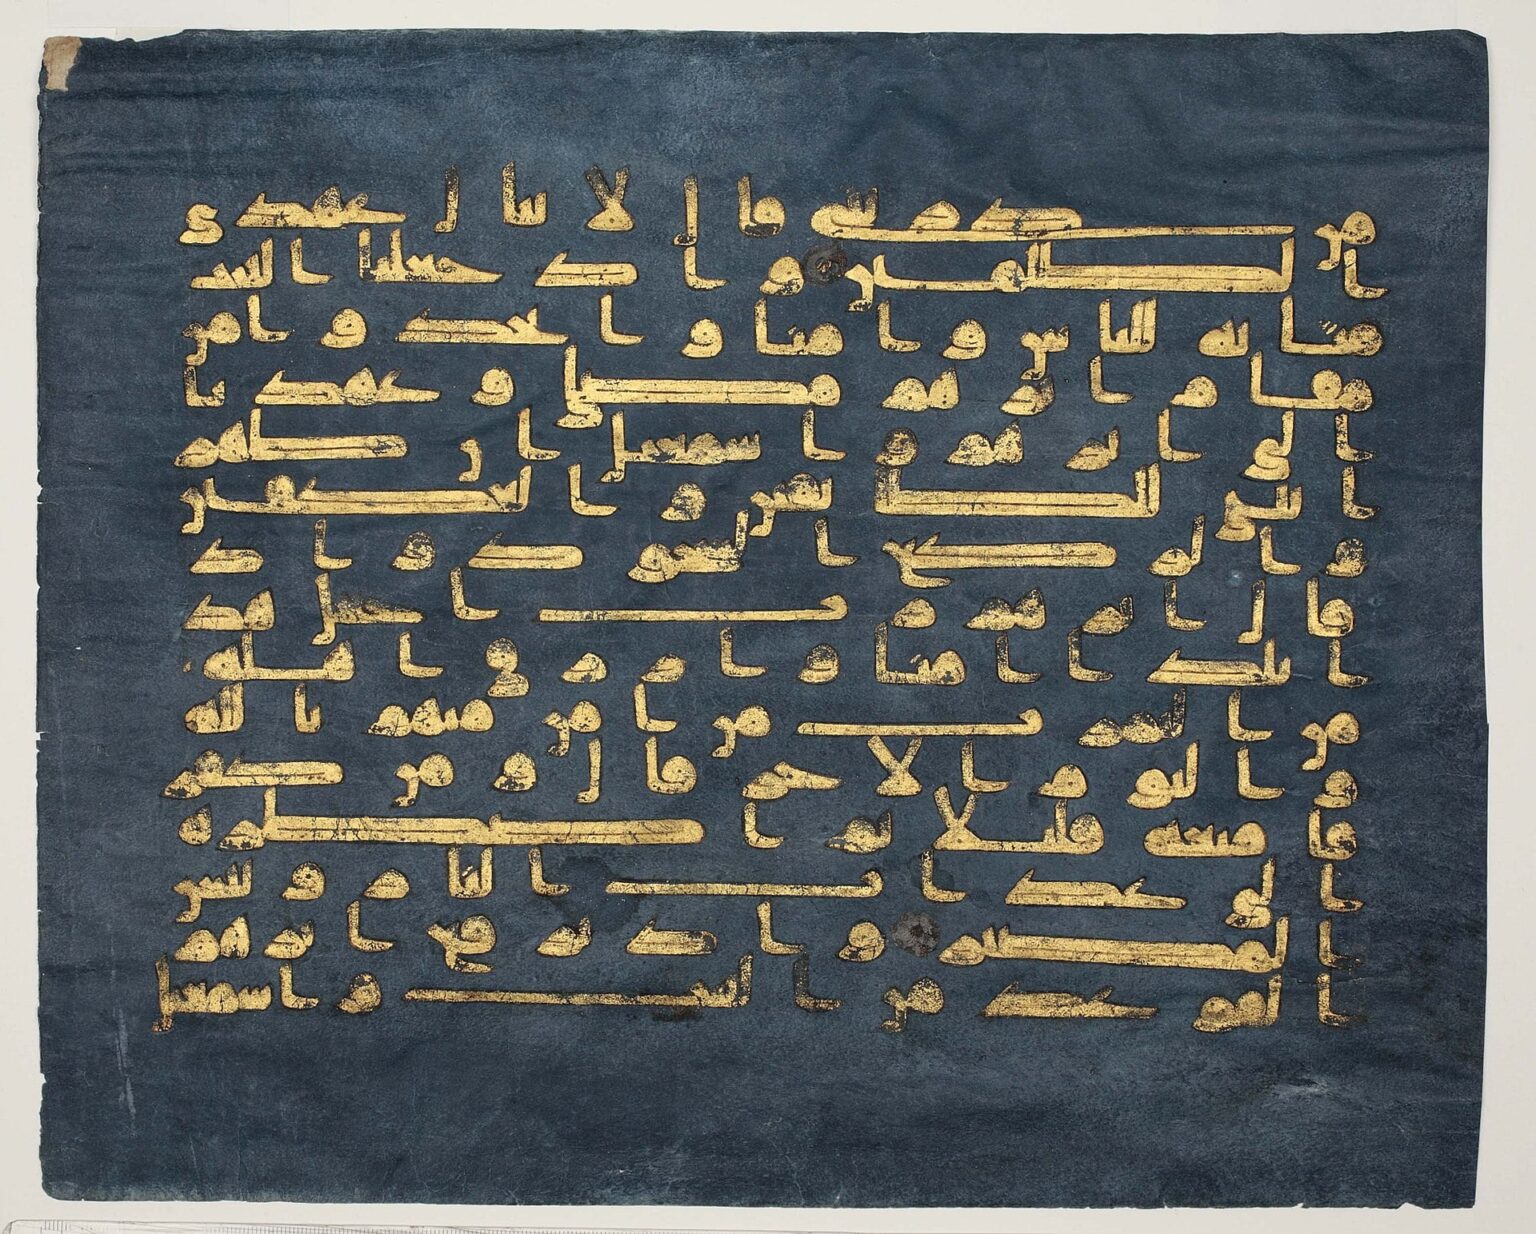 من ذريتي قال لا ينال عهدي
الظلمين واذ جعلنا البيت
مثابه للناس وامنا واتخذوا من
مقام ابرهم مصلى وعهدنا
الى ابرهم واسمعيل ان طهر
ا بيتي للطايفين والعكفين
والركع السجود واذ
قال ابرهم رب اجعل هذ
ا بلدا امنا وارزق اهله
من الثمرت من امن منهم بالله
واليوم الاخر قال ومن كفر
فامتعه قليلا ثم اضطره
الى عذاب النار وبيس
المصير واذ يرفع ابرهم
القوعد من البيت واسمعيل